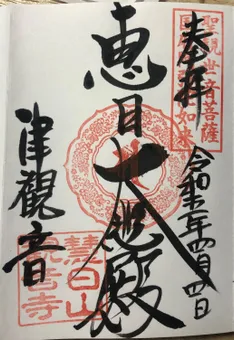 奉拝
聖観世音菩薩
国府阿弥陀如来
令和
年四月四日
恵日大悲殿
津觀音
慧日山
観音寺